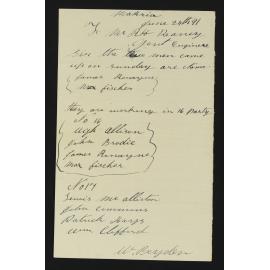 Makria
June 24th 91
To Mr R H Reaney
Gent Engineer
Sir the Two men came
up on Sunday are down
James Runayne
Max fischer
they are working in 16 Party
No 16
Hugh Allison
John Brodie
James Runayne
Max fischer
No 17
Lewis McAllister
John Cummins
Patrick
Wm Clifford
W Bryden